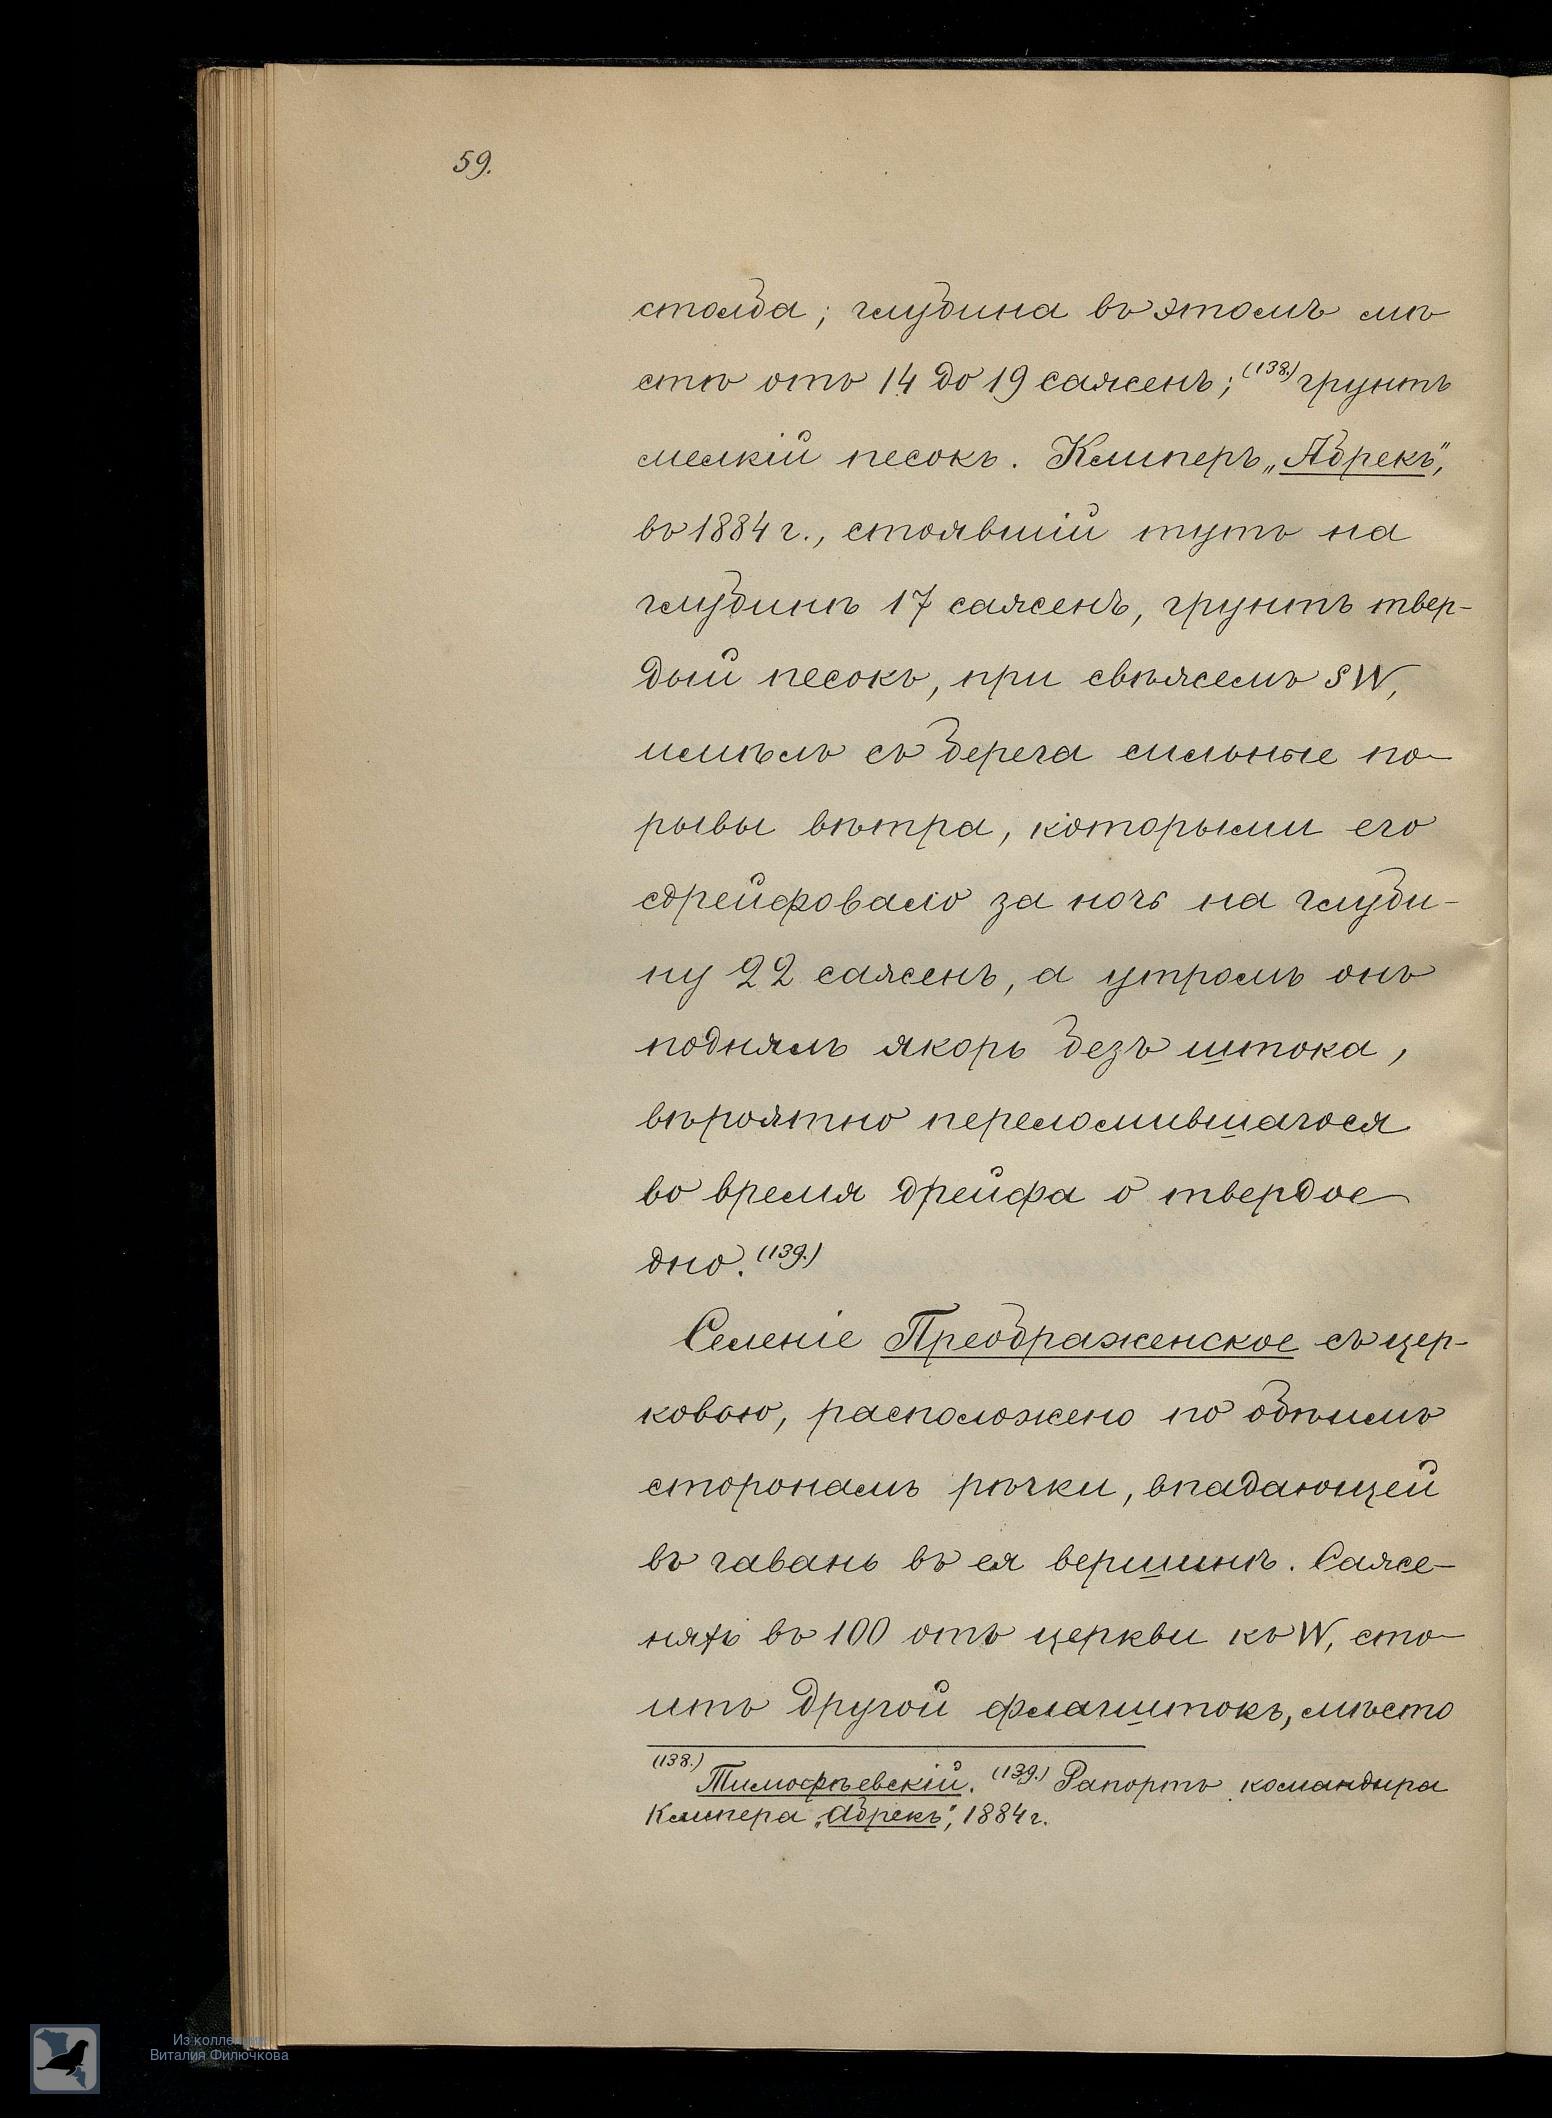 59.
столба; глубина въ этомъ мѣ
стѣ отъ 14 до 19 саженъ; (138.) грунтъ
мелкій песокъ. Клиперъ „Абрекъ“,
въ 1884 г., стоявшій тутъ на
глубинѣ 17 саженъ, грунтъ твер-
дый песокъ, при свѣжемъ SW,
имѣлъ съ берега сильные по-
рывы вѣтра, которыми его
сдрейфовало за ночь на глуби-
ну 22 саженъ, а утромъ онъ
поднялъ якорь безъ штока,
вѣроятно переломившагося
во время дрейфа о твердое
дно. (139.)
Селеніе Преображенское съ цер-
ковью, расположено по обѣимъ
сторонамъ рѣчки, впадающей
въ гавань въ ея вершинѣ. Саже-
няхъ въ 100 отъ церкви къ W, сто-
итъ другой флагштокъ, мѣсто
(138.) Тимофѣевскій. (139.) Рапортъ командира
Клипера „Абрекъ“, 1884 г.
Из коллекции
Виталия Филючкова